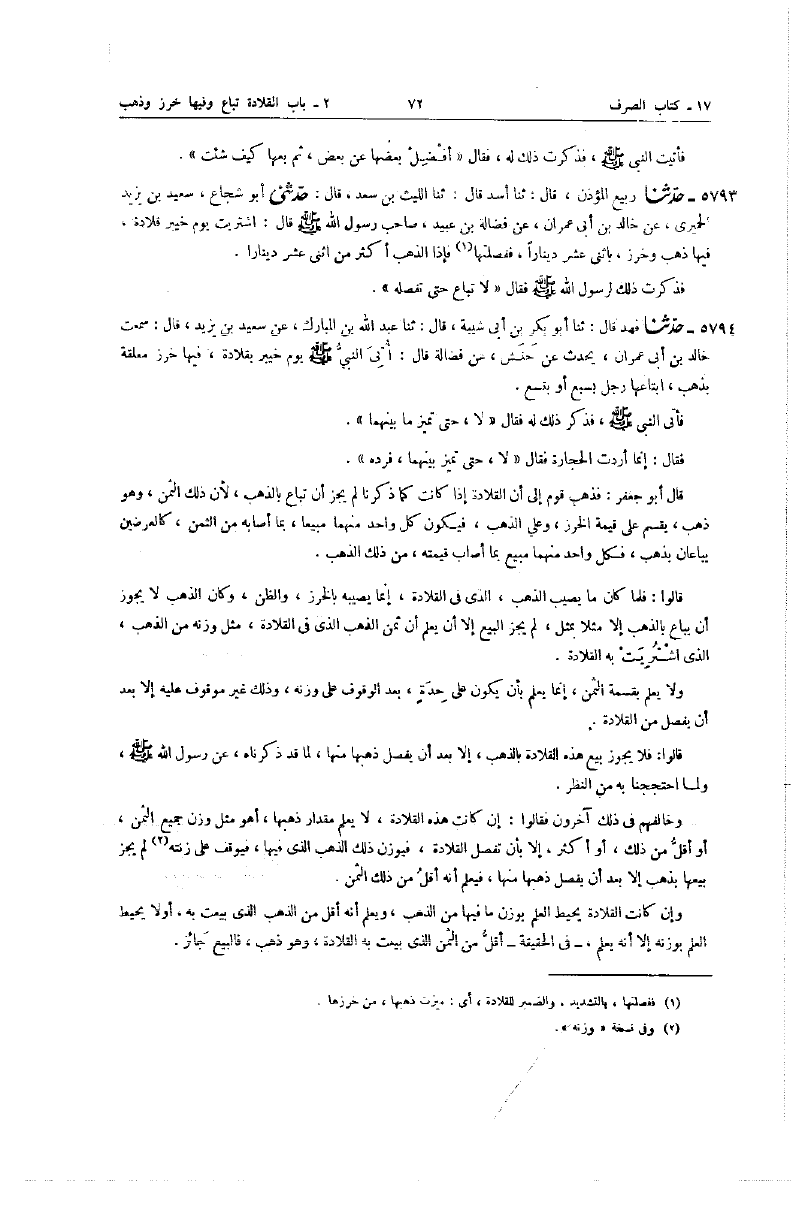 ١٧ - كتاب الصرف ٧٢ ٢ - باب القلادة تباع وفيها خرز وذهب
فأتيت النبي ﷺ ، فذكرت ذلك له ، فقال « أفْضِلْ بعضها عن بعض ، ثم بعها كيف شئت » .
٥٧٩٣ - حدثنا ربيع المؤذن ، قال : ثنا أسد قال : ثنا الليث بن سعد ، قال : حدثني أبو شجاع ، سعيد بن يزيد
الحميرى ، عن خالد بن أبى عمران ، عن فضالة بن عبيد ، صاحب رسول الله ﷺ قال : اشتريت يوم خيبر قلادة ،
فيها ذهب وخرز ، باثنى عشر ديناراً ، ففصلتها(١) فإذا الذهب أكثر من اثنى عشر دينارا .
فذكرت ذلك لرسول الله ﷺ فقال « لا تباع حتى تفصله » .
٥٧٩٤ - حدثنا فهد قال : ثنا أبو بكر بن أبى شيبة ، قال : ثنا عبد الله بن المبارك ، عن سعيد بن يزيد ، قال : سمعت
خالد بن أبى عمران ، يحدث عن حَنَش ، عن فضالة قال : أُتِىَ النبىُّ ﷺ يوم خيبر بقلادة ، فيها خرز معلقة
بذهب ، ابتاعها رجل بسبع أو بتسع .
فأتى النبى ﷺ ، فذكر ذلك له فقال « لا ، حتى تميز ما بينهما » .
فقال : إنما أردت الحجارة فقال « لا ، حتى تميز بينهما ، فرده » .
قال أبو جعفر : فذهب قوم إلى أن القلادة إذا كانت كما ذكرنا لم يجز أن تباع بالذهب ، لأن ذلك الثمن ، وهو
ذهب ، يقسم على قيمة الخرز ، وعلي الذهب ، فيكون كل واحد منهما مبيعا ، بما أصابه من الثمن ، كالعرضين
يباعان بذهب ، فكل واحد منهما مبيع بما أصاب قيمته ، من ذلك الذهب .
قالوا : فلما كان ما يصيب الذهب ، الذى فى القلادة ، إنما يصيبه بالخرز ، والظن ، وكان الذهب لا يجوز
أن يباع بالذهب إلا مثلا بمثل ، لم يجز البيع إلا أن يعلم أن ثمن الذهب الذى فى القلادة ، مثل وزنه من الذهب ،
الذى اشْتُرِيَتْ به القلادة .
ولا يعلم بقسمة الثمن ، إنما يعلم بأن يكون على حِدَةٍ ، بعد الوقوف على وزنه ، وذلك غير موقوف عليه إلا بعد
أن يفصل من القلادة .
قالوا: فلا يجوز بيع هذه القلادة بالذهب ، إلا بعد أن يفصل ذهبها منها ، لما قد ذكرناه ، عن رسول الله ﷺ ،
ولما احتججنا به من النظر .
وخالفهم فى ذلك آخرون فقالوا : إن كانت هذه القلادة ، لا يعلم مقدار ذهبها ، أهو مثل وزن جميع الثمن ،
أو أقلُّ من ذلك ، أو أكثر ، إلا بأن تفصل القلادة ، فيوزن ذلك الذهب الذى فيها ، فيوقف على زنته(٢) لم يجز
بيعها بذهب إلا بعد أن يفصل ذهبها منها ، فيعلم أنه أقلُّ من ذلك الثمن .
وإن كانت القلادة يحيط العلم بوزن ما فيها من الذهب ، ويعلم أنه أقل من الذهب الذى بيعت به ، أولا يحيط
العلم بوزنه إلا أنه يعلم ، ـ فى الحقيقة ـ أقلُّ من الثمن الذى بيعت به القلادة ، وهو ذهب ، فالبيع جائز .
(١) ففصلتها ، بالتشديد ، والضمير للقلادة ، أى : ميزت ذهبها ، من خرزها .
(٢) وفى نسخة « وزنه » .